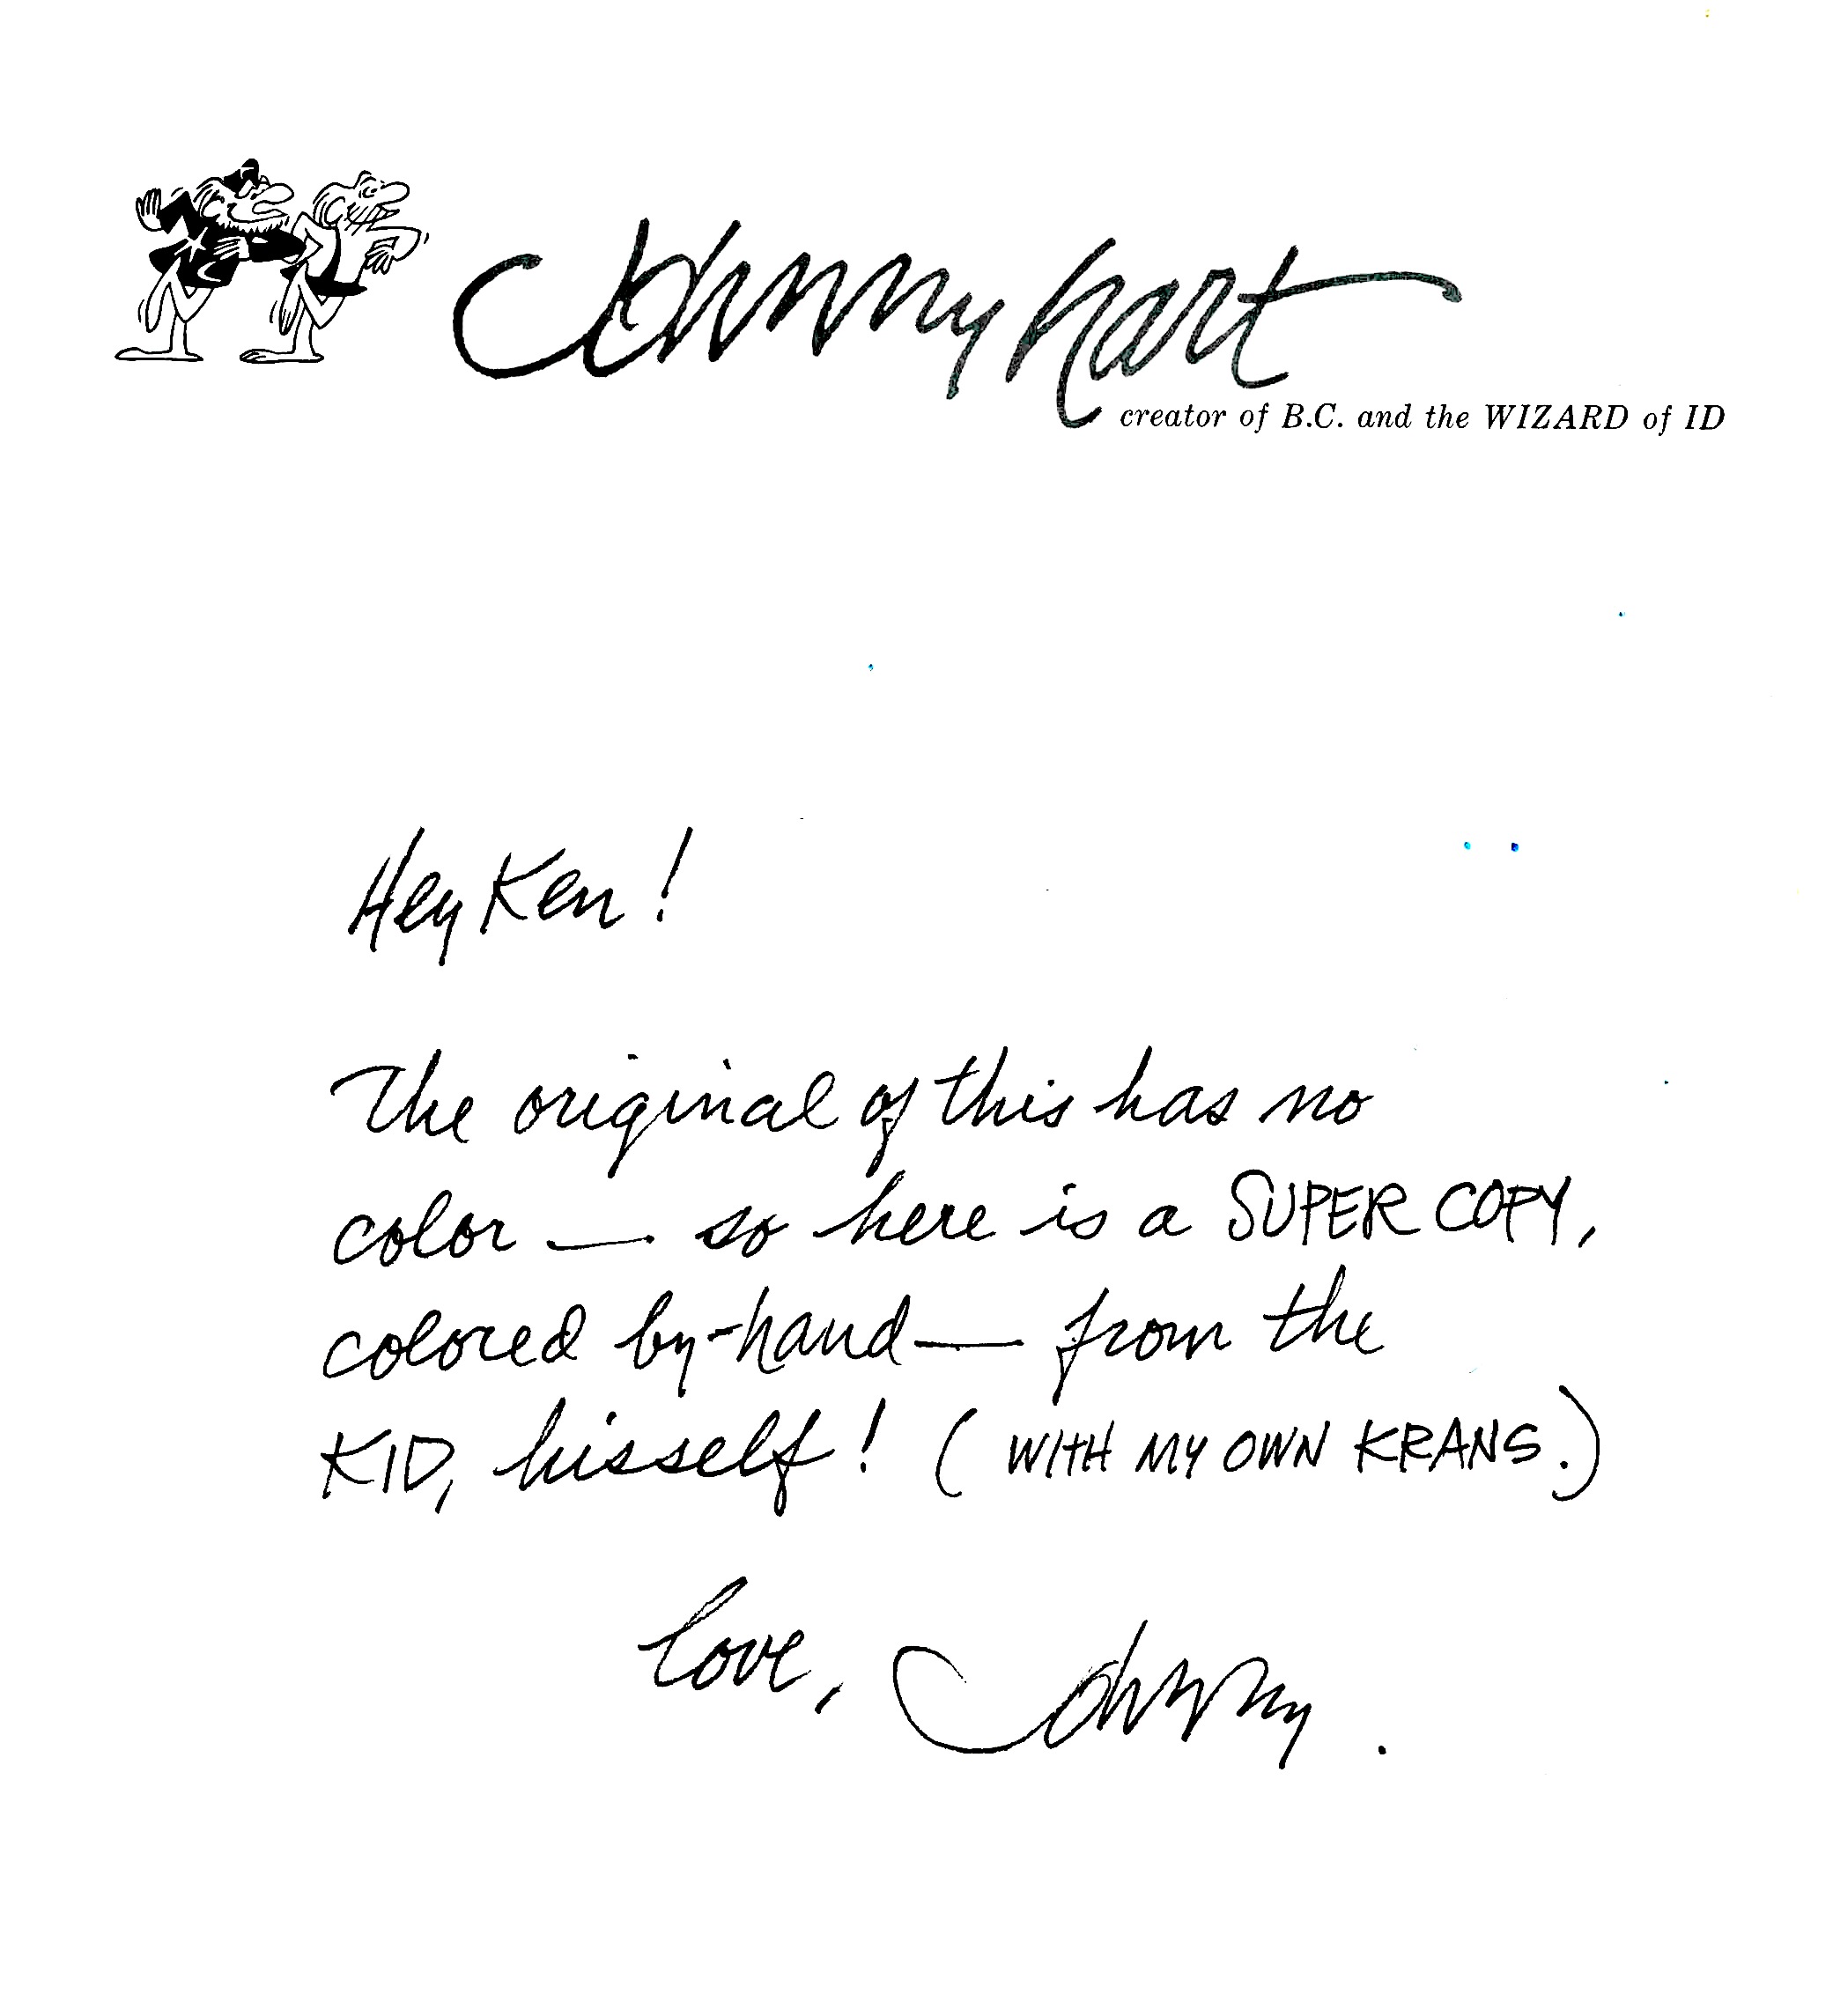 Johnny hart
creator of B.C. and the WIZARD of ID
Hey Ken!
The original of this has no
color — so here is a SUPER COPY,
colored by-hand — from the
KID, hisself! (WITH MY OWN KRANS.)
Love, Johnny.